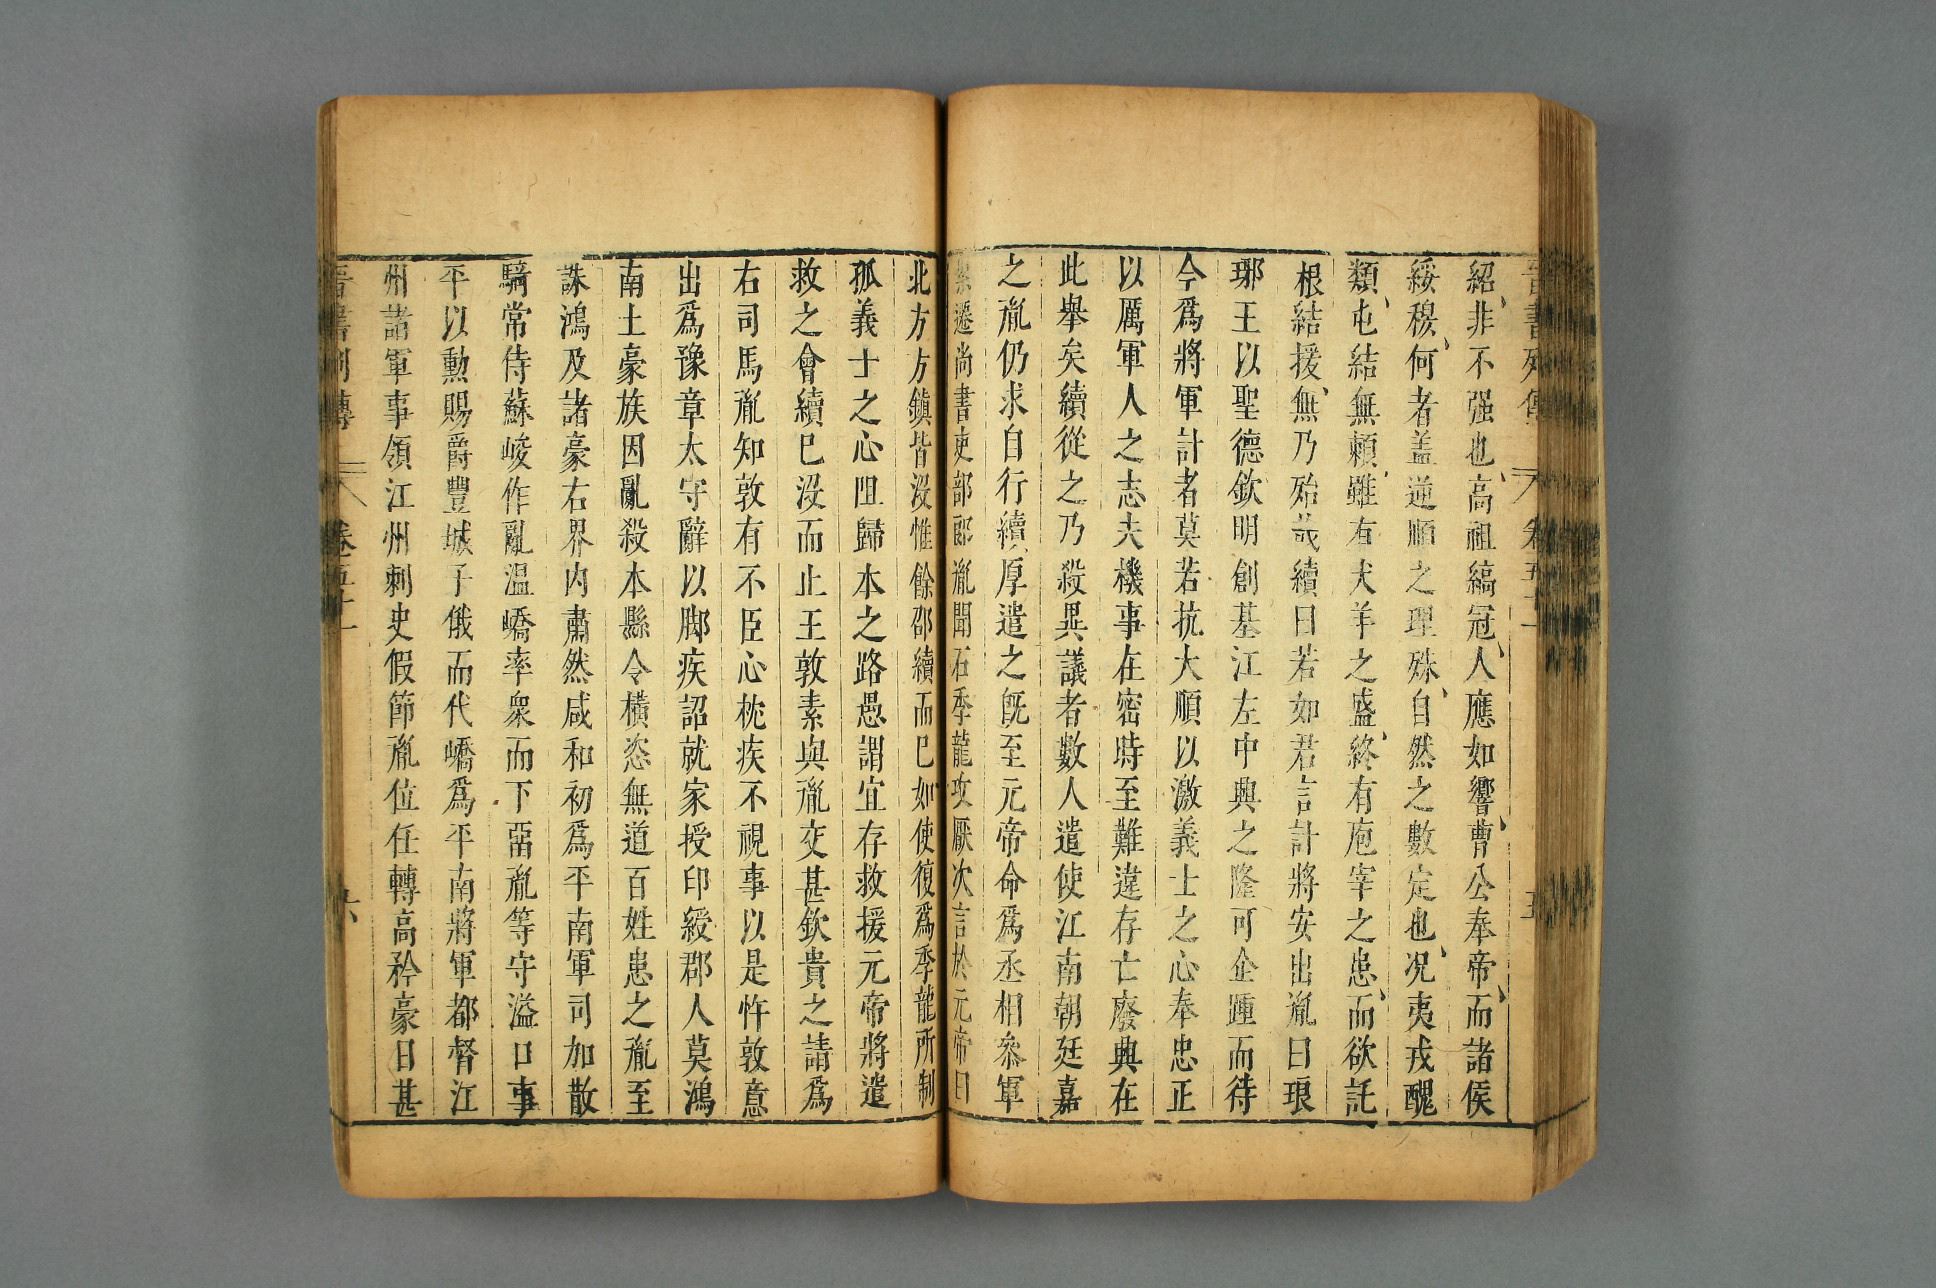 晉書列傳 卷五十一 五
紹非不强也高祖縞冠人應如響曹公奉帝而諸侯
綏穆何者盖逆順之理殊自然之數定也况夷戎醜
類屯結無賴雖有犬羊之盛終有庖宰之患而欲託
根結援無乃殆哉續曰若如君言計將安出胤曰琅
琊王以聖德欽明創基江左中興之隆可企踵而待
今爲將軍計者莫若抗大順以激義士之心奉忠正
以厲軍人之志夫機事在密時至難違存亡廢典在
此舉矣續從之乃殺異議者數人遣使江南朝廷嘉
之胤仍求自行續厚遣之旣至元帝命爲丞相參軍
累遷尚書吏部郎胤聞石季龍攻厭次言於元帝曰
北方方鎮皆没惟餘邵續而巳如使復爲季龍所制
孤義士之心阻歸本之路愚謂宜存救援元帝將遣
救之會續巳没而止王敦素與胤交甚欽貴之請爲
右司馬胤知敦有不臣心枕疾不視事以是忤敦意
出爲豫章太守辭以脚疾詔就家授印綬郡人莫鴻
南土豪族因亂殺本縣令横恣無道百姓患之胤至
誅鴻及諸豪右界内肅然咸和初爲平南軍司加散
騎常侍蘇峻作亂温嶠率衆而下畱胤等守湓口事
平以勲賜爵豐城子俄而代嶠爲平南將軍都督江
州諸軍事領江州刺史假節胤位任轉高矜豪日甚
晉書列傳 卷五十一 六